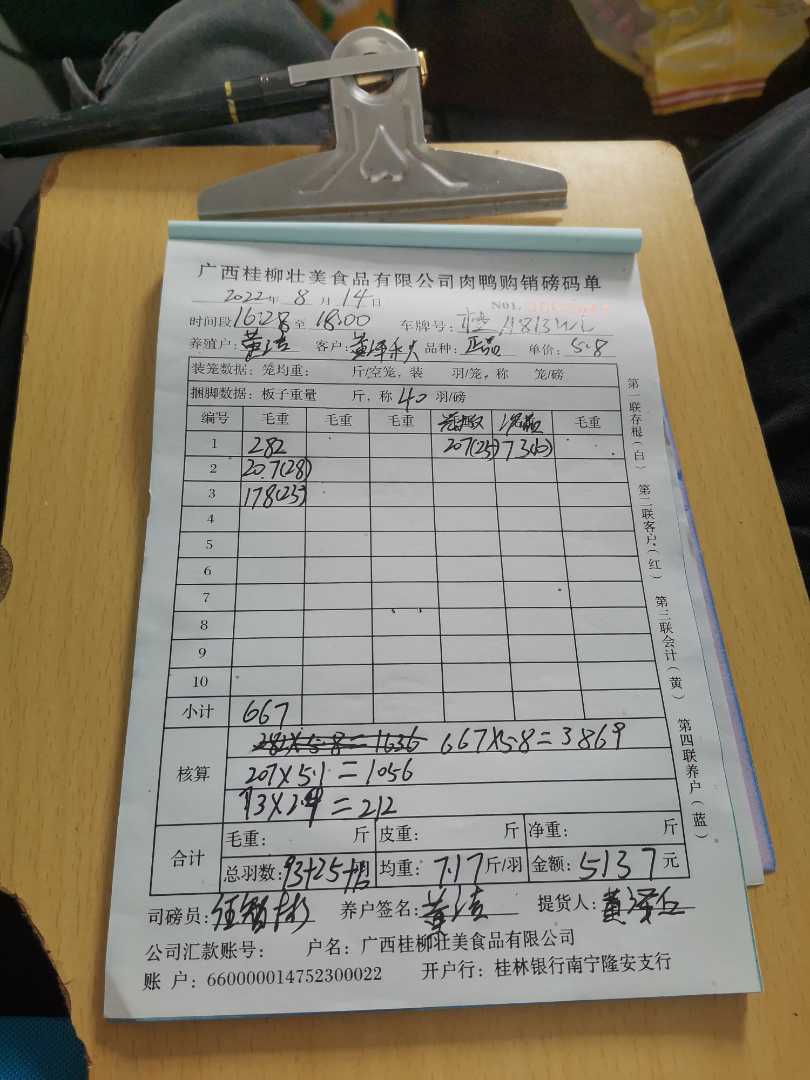 广西桂柳壮美食品有限公司肉鸭购销磅码单
2022年 8 月 14 日 N01.
时间段 16:28 至 18:00 车牌号:
养殖户: 黄 客户: 黄 品种: 正品 单价: 5.8
装笼数据: 笼均重: 斤/空笼, 装 羽/笼, 称 笼/磅
捆脚数据: 板子重量 斤, 称 40 羽/磅
编号 毛重 毛重 毛重 毛重
1 282 207(25) 73(10)
2 207(28)
3 178(25)
4
5
6
7
8
9
10
小计 667
核算 282×5.8=1636 667×5.8=3869
207×5.1=1056
73×2.9=212
合计 毛重: 斤 皮重: 斤 净重: 斤
总羽数: 93+25+ 均重: 7.17 斤/羽 金额: 5137 元
司磅员: 养户签名: 黄 提货人: 黄
公司汇款账号: 户名: 广西桂柳壮美食品有限公司
账 户: 660000014752300022 开户行: 桂林银行南宁隆安支行
第一联存根(白) 第二联客户(红) 第三联会计(黄) 第四联养户(蓝)